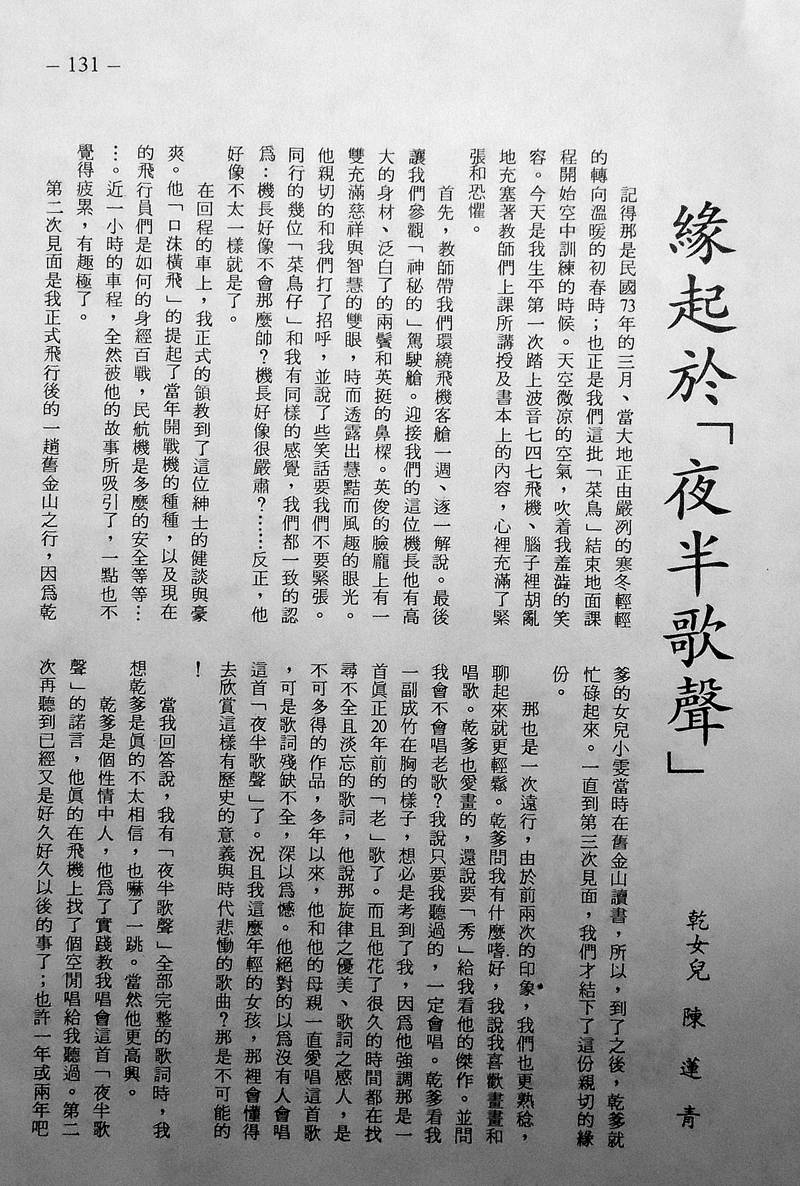 – 131 –
緣起於「夜半歌聲」
乾女兒 陳蓮青
記得那是民國73年的三月、當大地正由嚴冽的寒冬輕輕
的轉向溫暖的初春時；也正是我們這批「菜鳥」結束地面課
程開始空中訓練的時候。天空微凉的空氣，吹着我羞澁的笑
容。今天是我生平第一次踏上波音七四七飛機、腦子裡胡亂
地充塞著教師們上課所講授及書本上的內容，心裡充滿了緊
張和恐懼。
首先，教師帶我們環繞飛機客艙一週、逐一解說。最後
讓我們參觀「神秘的」駕駛艙。迎接我們的這位機長他有高
大的身材、泛白了的兩鬢和英挺的鼻樑。英俊的臉龐上有一
雙充滿慈祥與智慧的雙眼，時而透露出慧黠而風趣的眼光。
他親切的和我們打了招呼，並說了些笑話要我們不要緊張。
同行的幾位「菜鳥仔」和我有同樣的感覺，我們都一致的認
爲：機長好像不會那麼帥？機長好像很嚴肅？……反正，他
好像不太一樣就是了。
在回程的車上，我正式的領教到了這位紳士的健談與豪
爽。他「口沫橫飛」的提起了當年開戰機的種種，以及現在
的飛行員們是如何的身經百戰，民航機是多麼的安全等等…
…。近一小時的車程，全然被他的故事所吸引了，一點也不
覺得疲累，有趣極了。
第二次見面是我正式飛行後的一趟舊金山之行，因爲乾
爹的女兒小雯當時在舊金山讀書，所以，到了之後，乾爹就
忙碌起來。一直到第三次見面，我們才結下了這份親切的緣
份。
那也是一次遠行，由於前兩次的印象，我們也更熟稔，
聊起來就更輕鬆。乾爹問我有什麼嗜好，我說我喜歡畫畫和
唱歌。乾爹也愛畫的，還說要「秀」給我看他的傑作。並問
我會不會唱老歌？我說只要我聽過的，一定會唱。乾爹看我
一副成竹在胸的樣子，想必是考到了我，因爲他強調那是一
首眞正20年前的「老」歌了。而且他花了很久的時間都在找
尋不全且淡忘的歌詞，他說那旋律之優美、歌詞之感人，是
不可多得的作品，多年以來，他和他的母親一直愛唱這首歌
，可是歌詞殘缺不全，深以爲憾。他絕對的以爲沒有人會唱
這首「夜半歌聲」了。況且我這麼年輕的女孩，那裡會懂得
去欣賞這樣有歷史的意義與時代悲慟的歌曲？那是不可能的
！
當我回答說，我有「夜半歌聲」全部完整的歌詞時，我
想乾爹是眞的不太相信，也嚇了一跳。當然他更高興。
乾爹是個性情中人，他爲了實踐教我唱會這首「夜半歌
聲」的諾言，他眞的在飛機上找了個空閒唱給我聽過。第二
次再聽到已經又是好久好久以後的事了；也許一年或兩年吧